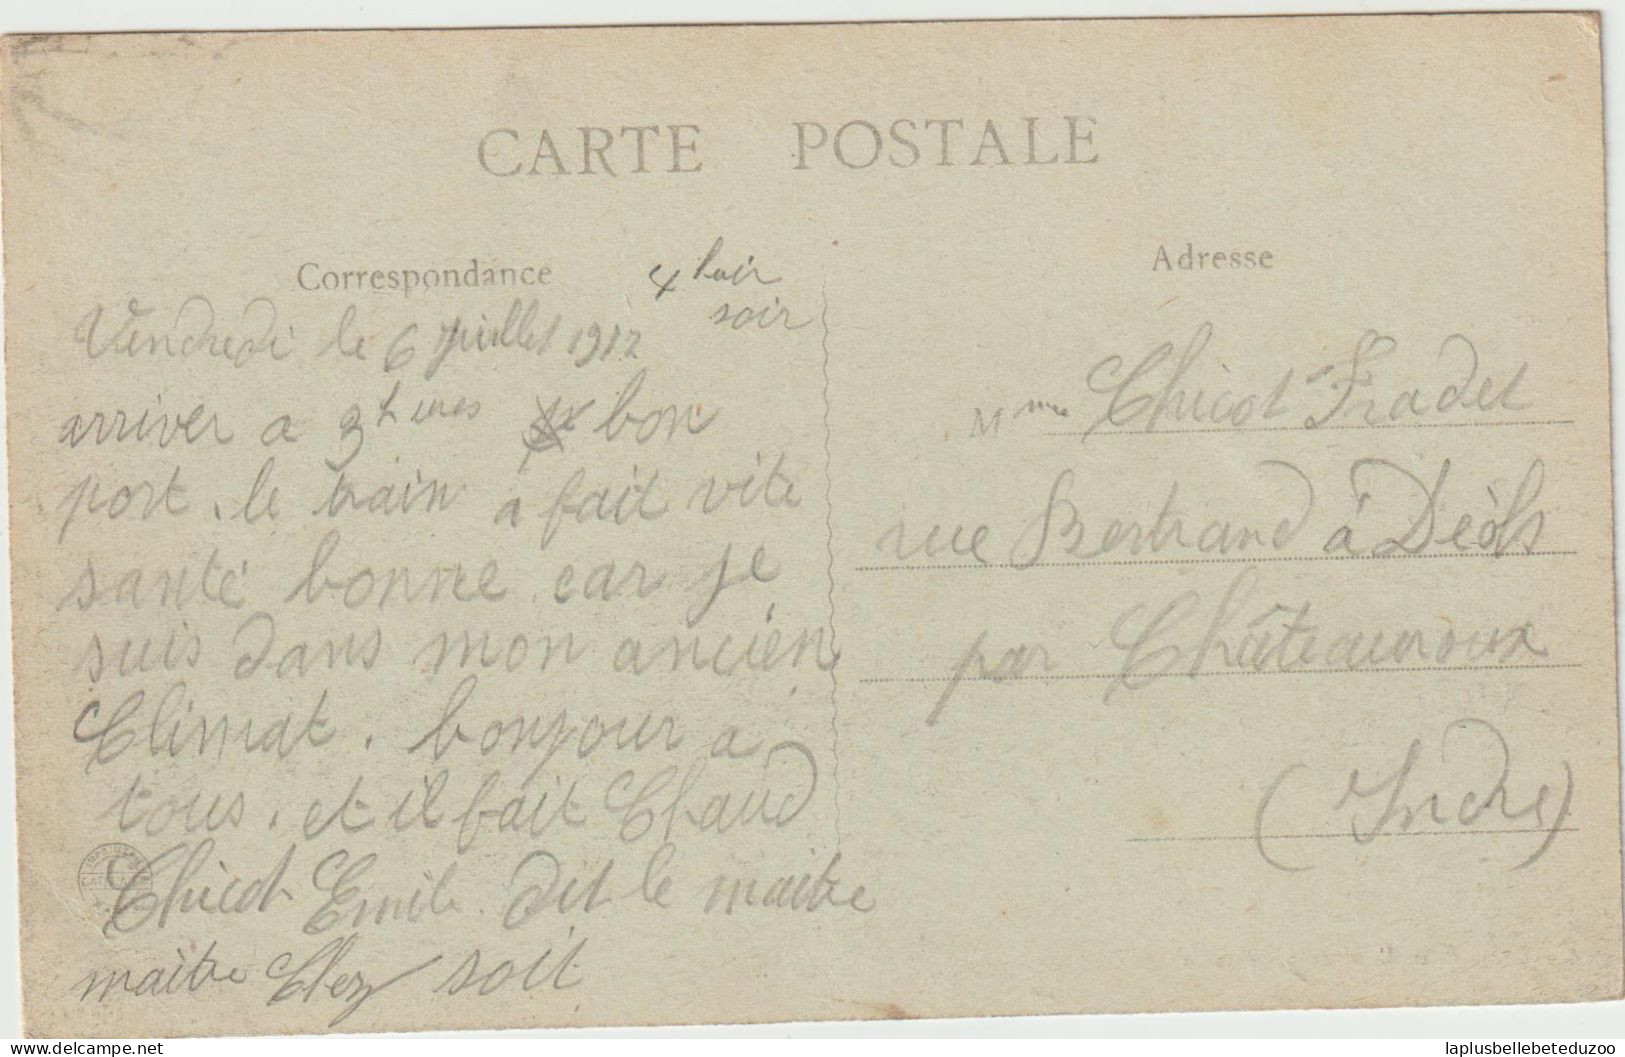 CARTE POSTALE
Correspondance
4 hair
soir
Vendredi le 6 Juillet 1912
arriver a 3 h bon
port. le train a fait vite
santé bonne car je
suis dans mon ancien
Climat. bonjour a
tous. et il fait Chaud
Chicot Emile dit le maitre
maitre Clez soit
Adresse
Mme Chicot Fradet
rue Bertrand à Déols
par Châteauroux
(Indre)
delcampe.net
laplusbellebeteduzoo